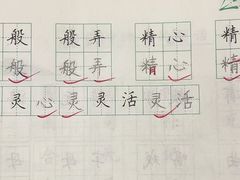 般 般 弄 精 心 精
般 般 弄 精 心 精
灵 心 灵 灵 活 灵 活